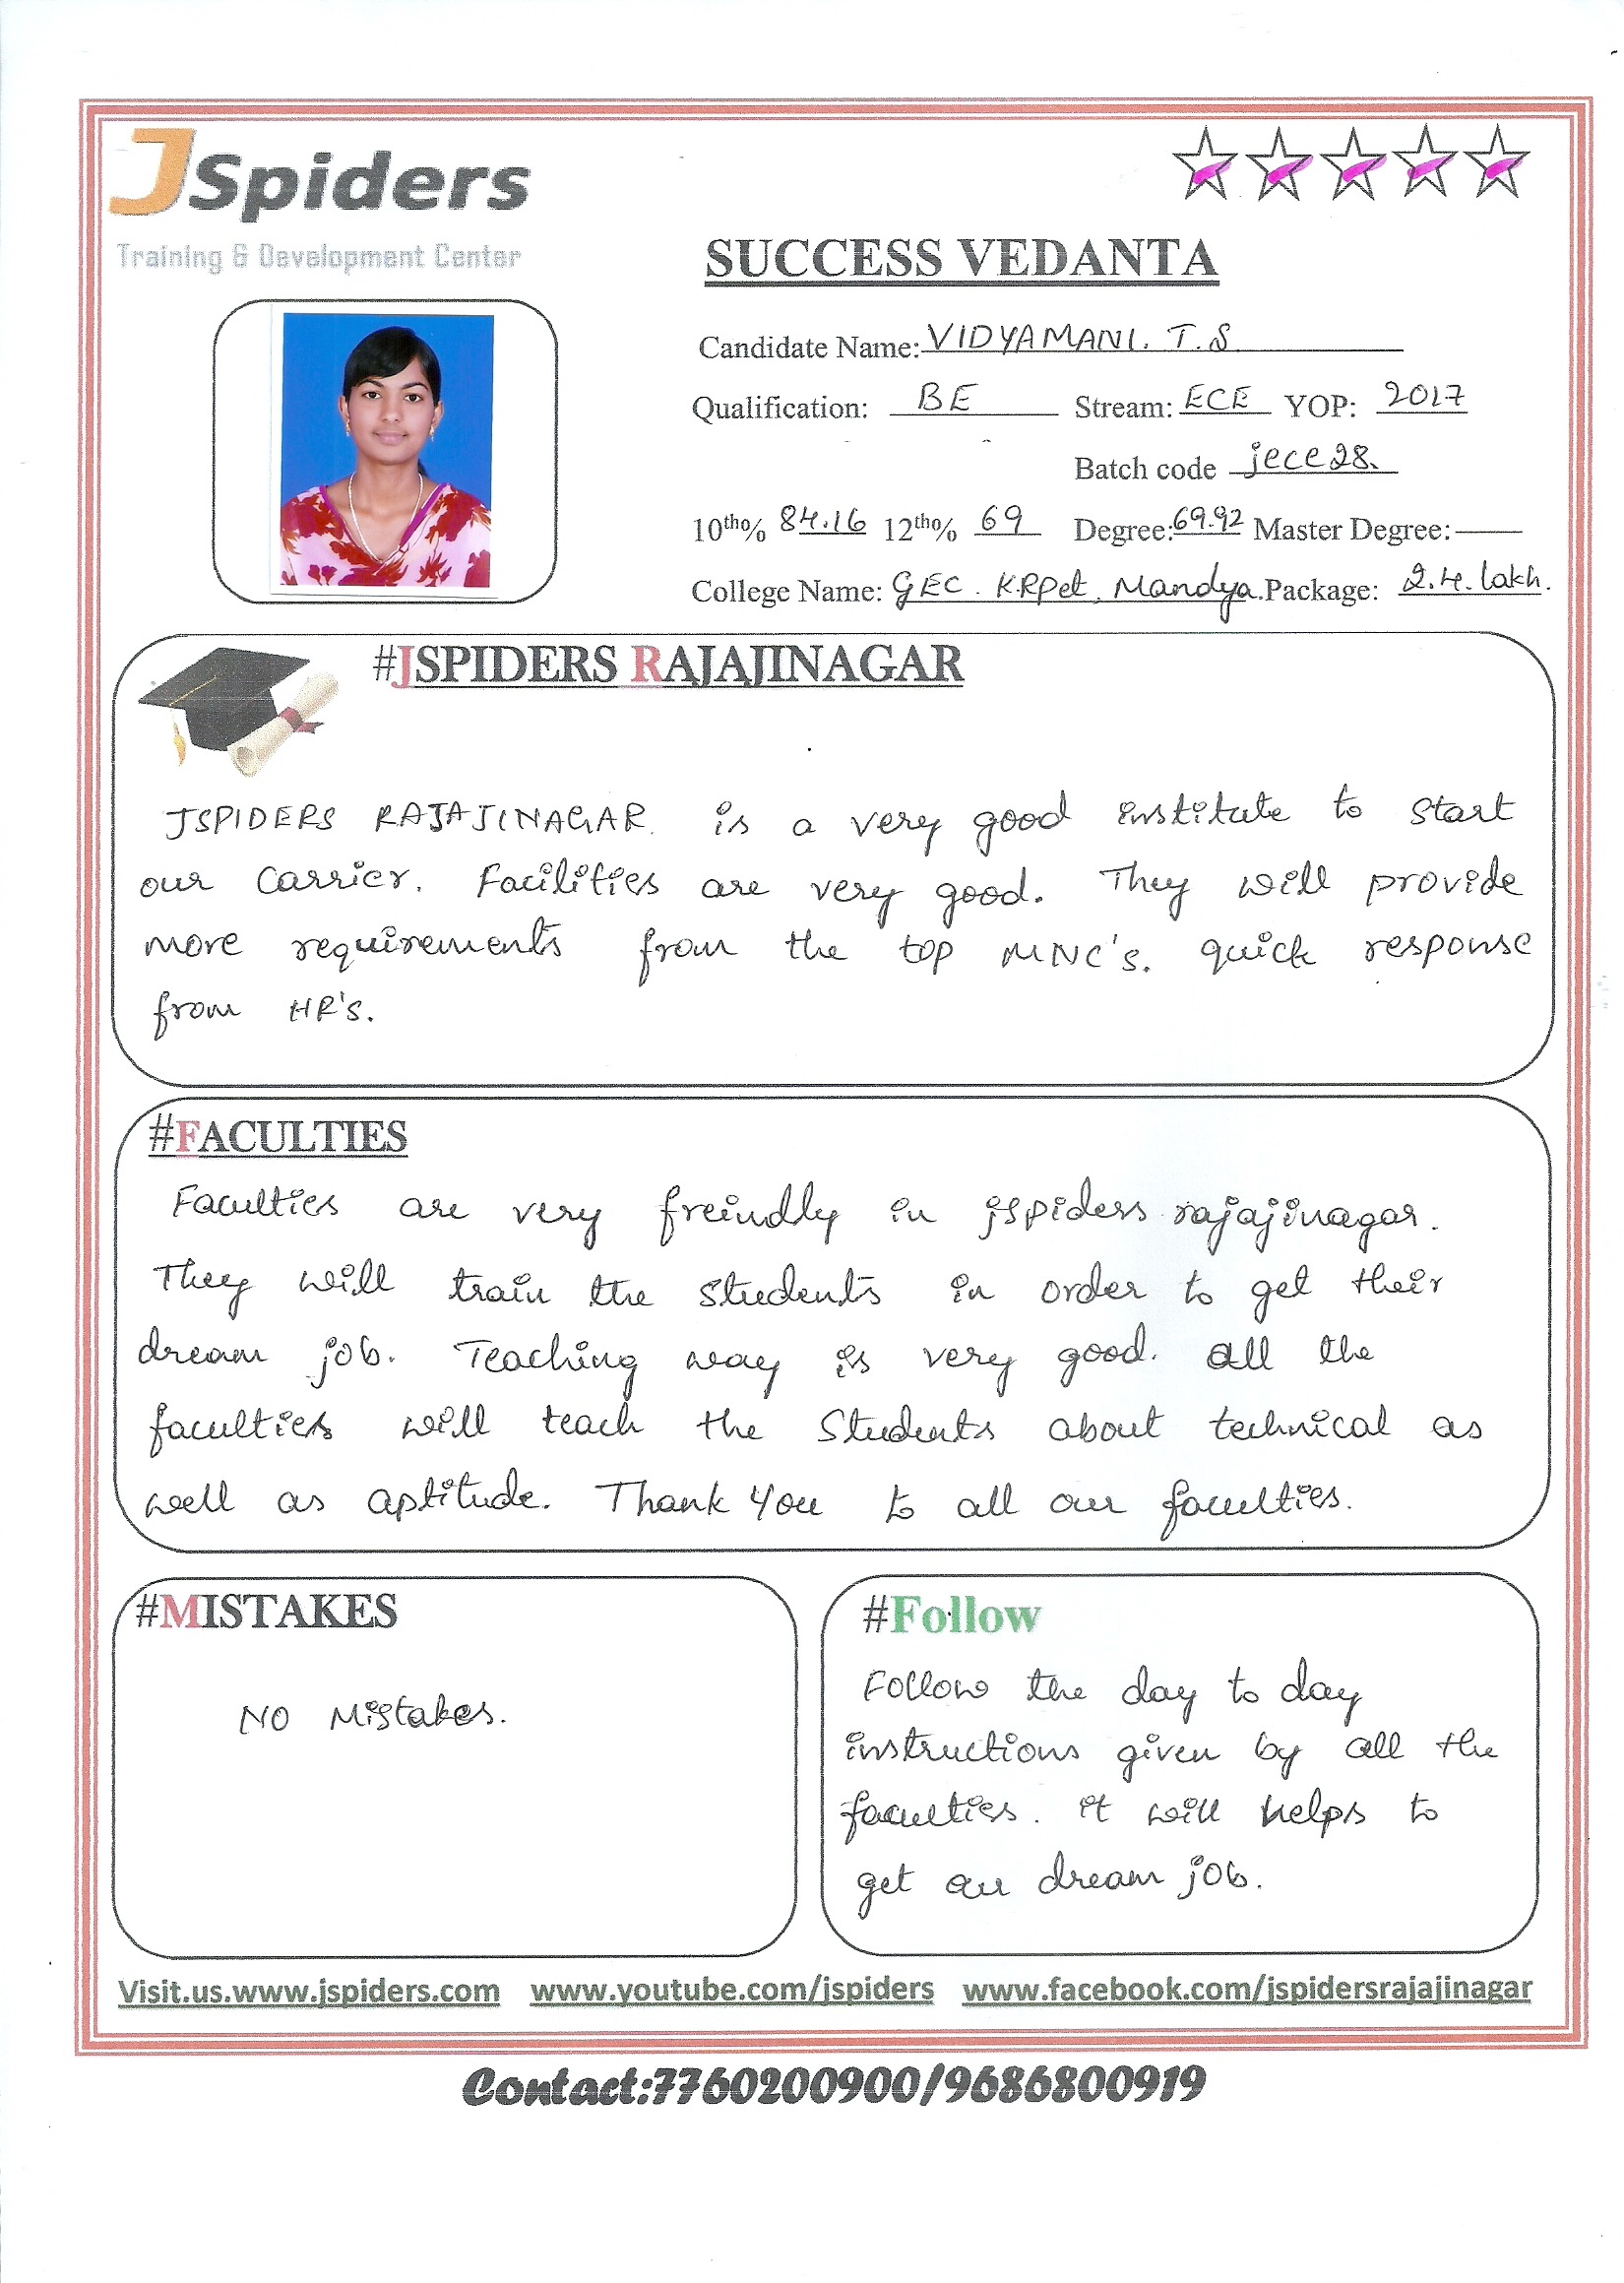 JSpiders
Training & Development Center
SUCCESS VEDANTA
Candidate Name: VIDYAMANI. T.S
Qualification: BE Stream: ECE YOP: 2017
Batch code jece28.
10th% 84.16 12th% 69 Degree: 69.92 Master Degree:
College Name: GEC. K.RPet, Mandya. Package: 2.4. lakh.
#JSPIDERS RAJAJINAGAR
JSPIDERS RAJAJINAGAR. is a very good institute to start
our carrier. Facilities are very good. They will provide
more requirements from the top MNC's. quick response
from HR's.
#FACULTIES
Faculties are very freindly in jspiders rajajinagar.
They will train the students in order to get their
dream job. Teaching way is very good. all the
faculties will teach the students about technical as
well as aptitude. Thank you to all our faculties.
#MISTAKES
NO Mistakes.
#Follow
Follow the day to day
instructions given by all the
faculties. it will helps to
get our dream job.
Visit.us.www.jspiders.com www.youtube.com/jspiders www.facebook.com/jspidersrajajinagar
Contact:7760200900/9686800919